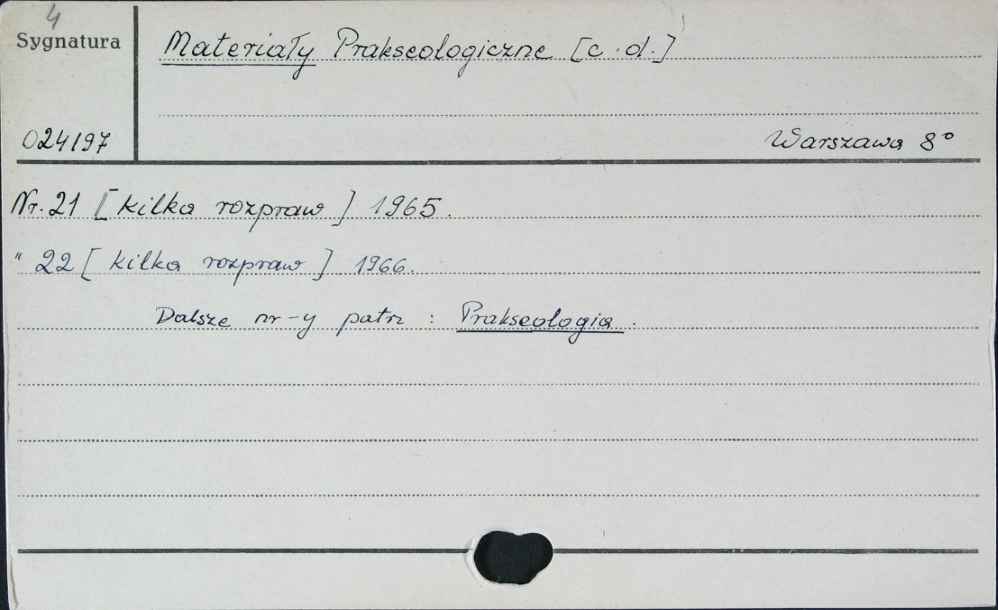 4
Sygnatura
Materiały Prakseologiczne [c.d.]
024197
Warszawa 8°
Nr. 21 [kilka rozpraw] 1965.
" 22 [kilka rozpraw] 1966.
Dalsze nr-y patrz : Prakseologia.